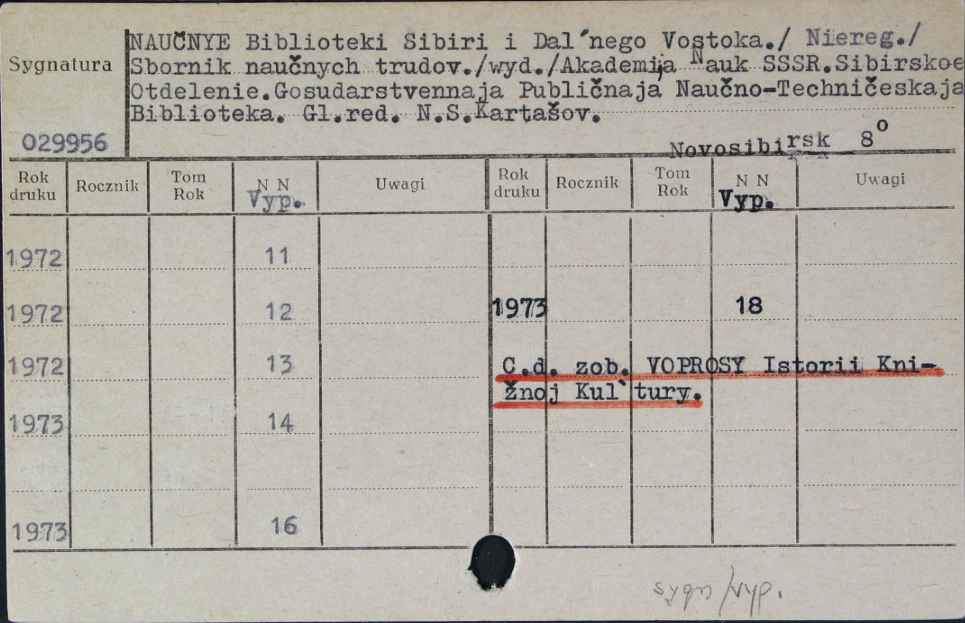 NAUČNYE Biblioteki Sibiri i Dal´nego Vostoka./ Niereg./
Sygnatura
Sbornik naučnych trudov./wyd./Akademija Nauk SSSR.Sibirskoe
Otdelenie.Gosudarstvennaja Publičnaja Naučno-Techničeskaja
Biblioteka. Gl.red. N.S.Kartašov.
029956
Novosibirsk 8º
Rok druku Rocznik Tom Rok N N Vyp. Uwagi Rok druku Rocznik Tom Rok N N Vyp. Uwagi
1972 11
1972 12 1973 18
1972 13 C.d. zob. VOPROSY Istorii Kni-
žnoj Kul`tury.
1973 14
1973 16
sygn/wyp.